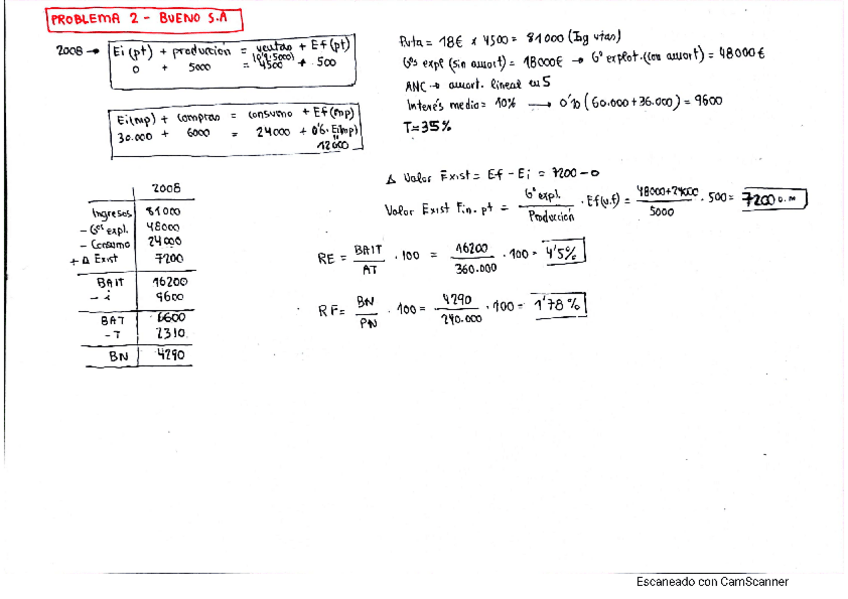 PROBLEMA 2 - BUENO S.A
2008 → Ei (pt) + producción = ventas + Ef (pt)
(0'9·5000)
0 + 5000 = 4500 + 500
Ei(mp) + compras = consumo + Ef(mp)
30.000 + 6000 = 24000 + 0'6·Ei(mp)
12000
= 18€ x 4500 = 81000 (Ing vtas)
Gºs expl (sin amort) = 18000€ → Gº explot. (con amort) = 48000€
ANC → amort. lineal en 5
Interés medio = 10% → 0'10 (60.000 + 36.000) = 9600
T = 35%
Δ Valor Exist = Ef - Ei = 7200 - 0
Valor Exist Fin. pt = Gº expl. / Producción · Ef(u.f) = 48000+24000 / 5000 · 500 = 7200
2008
Ingresos 81000
- Gºs expl. 48000
- Consumo 24000
+ Δ Exist 7200
BAIT 16200
- i 9600
BAT 6600
- T 2310
BN 4290
RE = BAIT / AT · 100 = 16200 / 360.000 · 100 = 4'5%
RF = BN / PN · 100 = 4290 / 240.000 · 100 = 1'78%
Escaneado con CamScanner